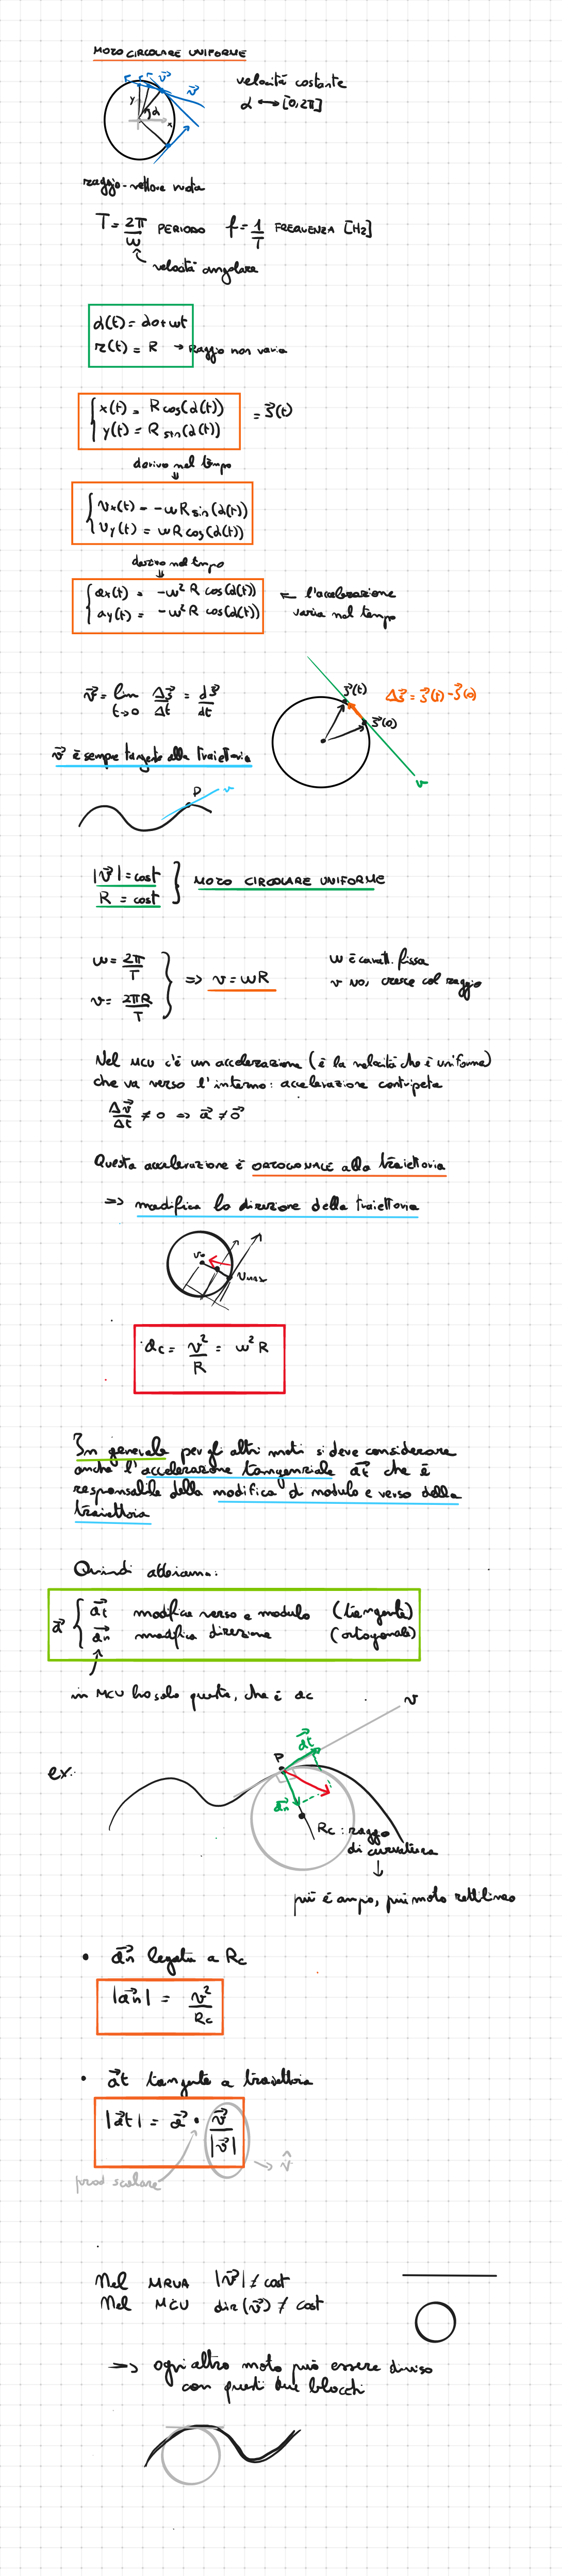 MOTO CIRCOLARE UNIFORME
v⃗
v⃗
y
α
x
velocità costante
α ⟷ [0,2π]
raggio-vettore ruota
T = 2π/ω PERIODO f = 1/T FREQUENZA [Hz]
velocità angolare
α(t) = α0 + ωt
r(t) = R → Raggio non varia
{ x(t) = R cos(α(t))
{ y(t) = R sin(α(t))
= s⃗(t)
derivo nel tempo
⇓
{ vx(t) = -ωR sin(α(t))
{ vy(t) = ωR cos(α(t))
derivo nel tempo
⇓
{ ax(t) = -ω² R cos(α(t))
{ ay(t) = -ω² R cos(α(t))
← l'accelerazione
varia nel tempo
v⃗ = lim t→0 Δs⃗/Δt = ds⃗/dt
s⃗(t)
Δs⃗ = s⃗(t) - s⃗(0)
s⃗(0)
v
v⃗ è sempre tangente alla traiettoria
P
v
|v⃗| = cost
R = cost
} MOTO CIRCOLARE UNIFORME
ω = 2π/T
v = 2πR/T
} => v = ωR
ω è caratt. fissa
v no, cresce col raggio
Nel MCU c'è un accelerazione (è la velocità che è uniforme)
che va verso l'interno: accelerazione centripeta
Δv⃗/Δt ≠ 0 => a⃗ ≠ 0⃗
Questa accelerazione è ORTOGONALE alla traiettoria
=> modifica la direzione della traiettoria
v0
ac = v²/R = ω² R
In generale per gli altri moti si deve considerare
anche l'accelerazione tangenziale a⃗t che è
responsabile della modifica di modulo e verso della
traiettoria
Quindi abbiamo:
a⃗ { a⃗t modifica verso e modulo (tangente)
a⃗n modifica direzione (ortogonale)
in MCU ho solo questa, che è ac
v
ex:
P
a⃗t
a⃗n
Rc: raggio
di curvatura
↓
più è ampio, più moto rettilineo
• a⃗n legata a Rc
|a⃗n| = v²/Rc
• a⃗t tangente a traiettoria
|a⃗t| = a⃗ · v⃗/|v⃗|
prod scalare
→ v̂
Nel MRUA |v⃗| ≠ cost
Nel MCU dir(v⃗) ≠ cost
=> ogni altro moto può essere diviso
con questi due blocchi